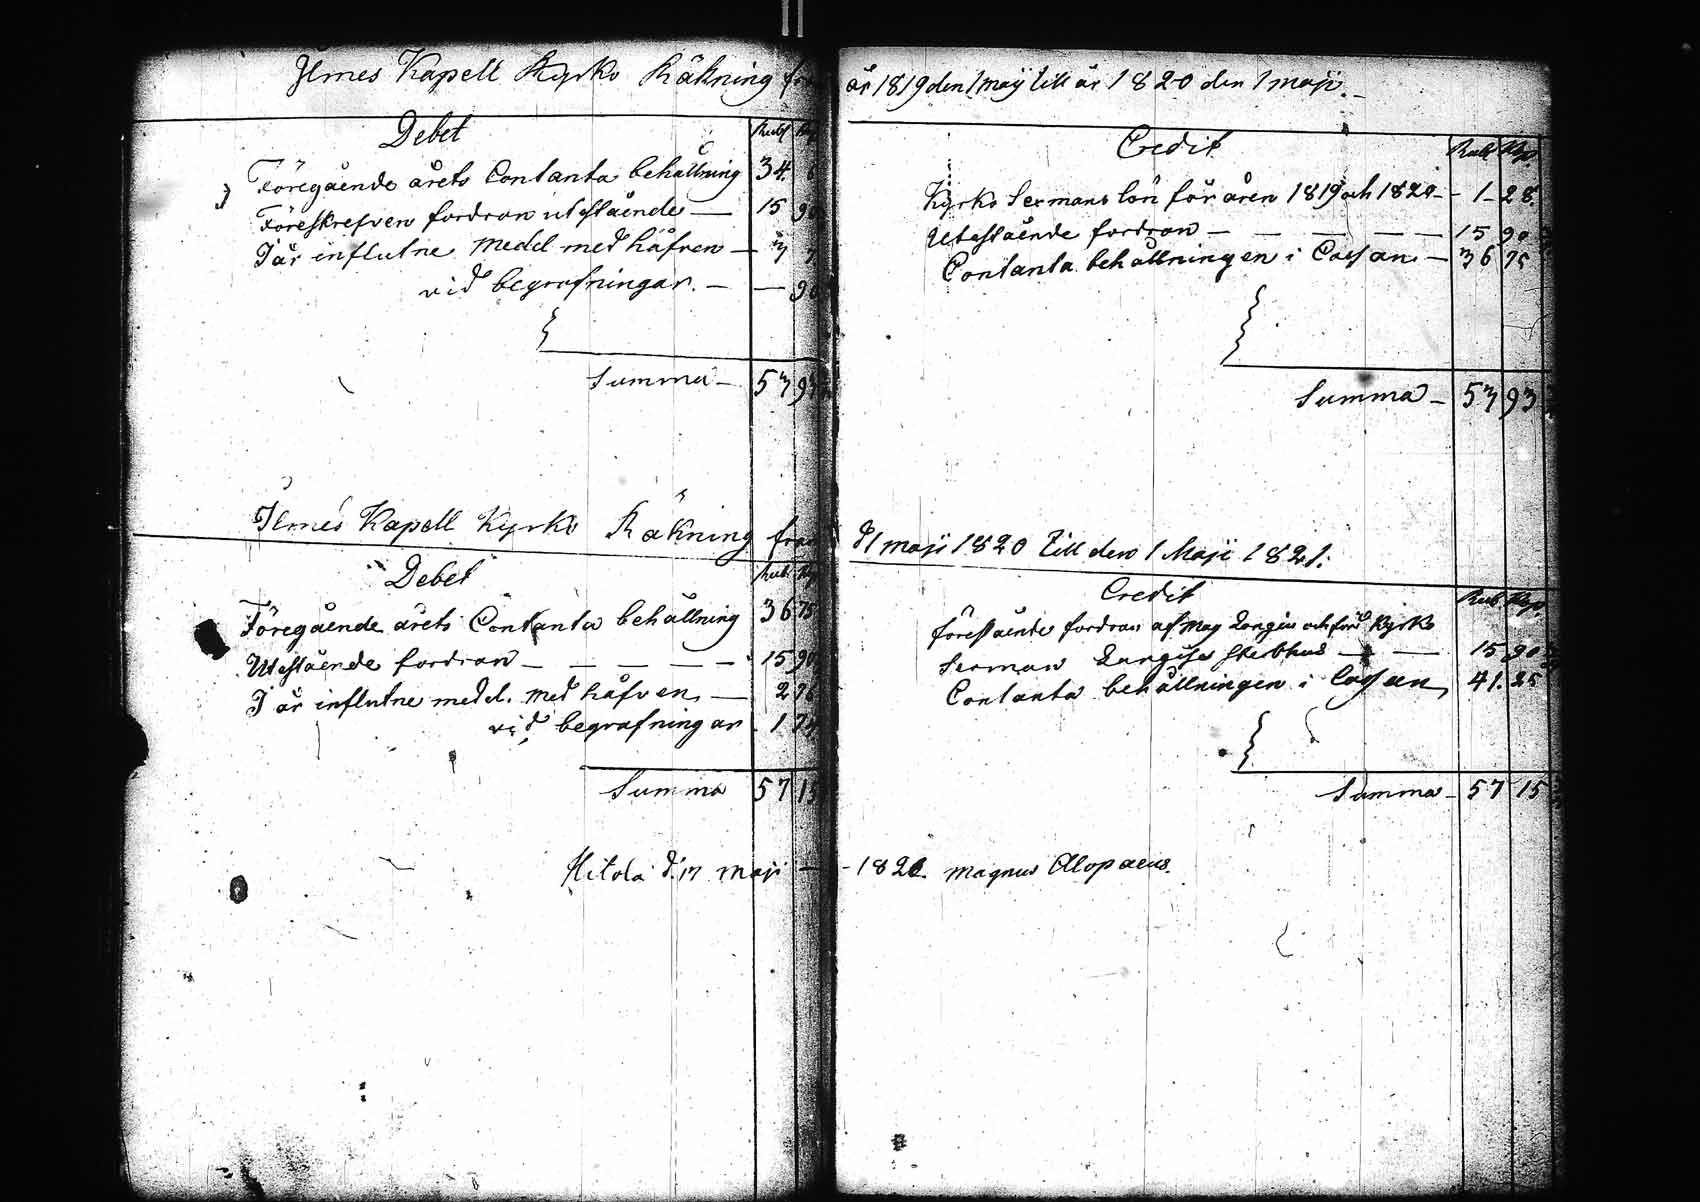 Ilmes Kapell Kyrko Räkning från
Debet
Rubl Kop
Föregående årets Contanta behållning 34. 6
Föreskrefven fordran utestående — 15 90
I år influtne medel med håfven — 7 7
vid begrafningar. — — 90
Summa — 57 93
Ilmes Kapell Kyrko Räkning från
Debet
Rub. Kop
Föregående årets Contanta behållning 36 75
Utestående fordran — — — — — 15 90
I år influtne medel. med håfven — 2 76
vid begrafningar 1 74
Summa 57 15
Hitola d. 17 maji —
år 1819 den 1 maij till år 1820 den 1 maji. —
Credit
Rubl Kop.
Kyrko Sexmans lön för åren 1819 och 1820 — 1 — 28
Utestående fordran — — — — — 15 90
Contanta behållningen i Cassan — 36 75
Summa — 53 93
d 1 maji 1820 till den 1 Maji 1821.
Credit
Rub. Kop.
förestående fordran af mag Zongius och förd Kyrko
Sexman sterbhus — — 15 90
Contanta behållningen i Cassan, 41. 25
Summa — 57 15
— 1821. Magnus Alopaeus.